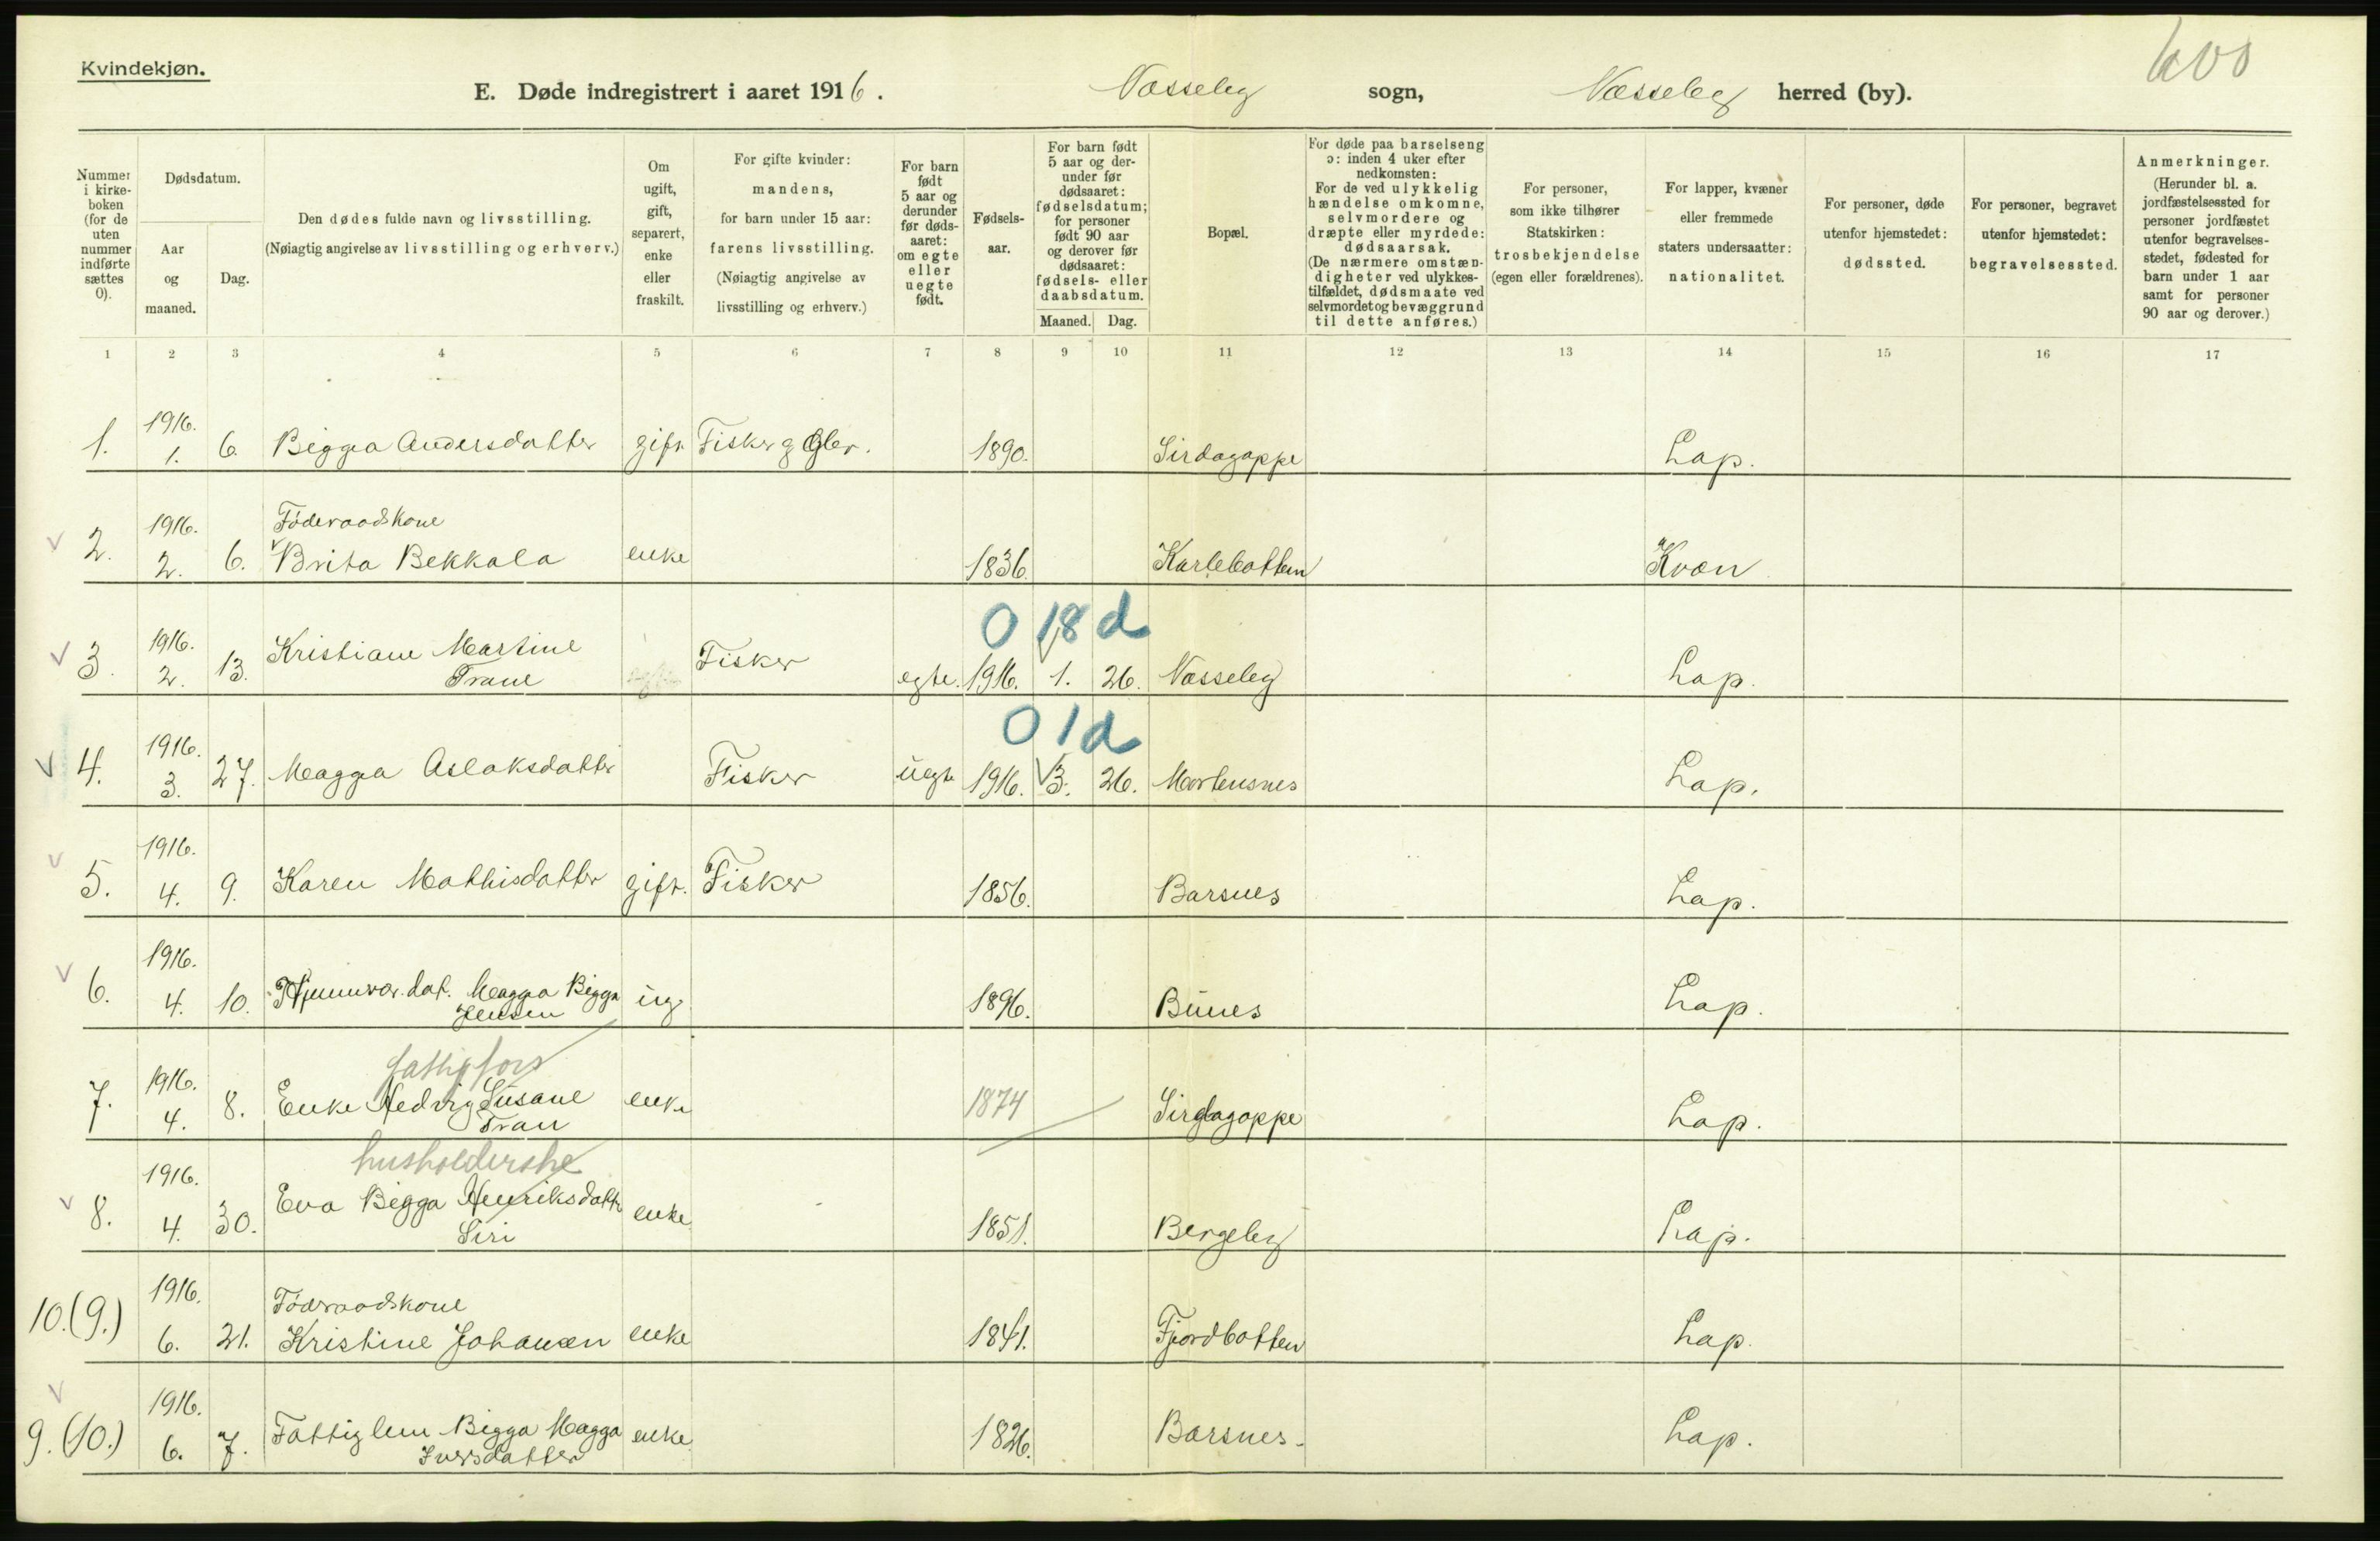 Kvindekjøn.
600
E. Døde indregistrert i aaret 1916. Næsseby sogn, Næsseby herred (by).
Nummer i kirke-boken (for de uten nummer indførte sættes 0).
Dødsdatum.
Aar og maaned.
Dag.
Den dødes fulde navn og livsstilling.
(Nøiagtig angivelse av livsstilling og erhverv.)
Om ugift, gift, separert, enke eller fraskilt.
For gifte kvinder:
mandens,
for barn under 15 aar:
farens livsstilling.
(Nøiagtig angivelse av
livsstilling og erhverv.)
For barn født 5 aar og derunder før døds-aaret: om egte eller uegte født.
Fødsels-aar.
For barn født 5 aar og der-under før dødsaaret: fødselsdatum; for personer født 90 aar og derover før dødsaaret: fødsels- eller daabsdatum.
Maaned. Dag.
Bopæl.
For døde paa barselseng
ɔ: inden 4 uker efter
nedkomsten:
For de ved ulykkelig
hændelse omkomne,
selvmordere og
dræpte eller myrdede:
dødsaarsak.
(De nærmere omstæn-
digheter ved ulykkes-
tilfældet, dødsmaate ved
selvmordet og bevæggrund
til dette anføres.)
For personer,
som ikke tilhører
Statskirken:
trosbekjendelse
(egen eller forældrenes).
For lapper, kvæner
eller fremmede
staters undersaatter:
nationalitet.
For personer, døde
utenfor hjemstedet:
dødssted.
For personer, begravet
utenfor hjemstedet:
begravelsessted.
Anmerkninger.
(Herunder bl. a.
jordfæstelsessted for
personer jordfæstet
utenfor begravelses-
stedet, fødested for
barn under 1 aar
samt for personer
90 aar og derover.)
1 2 3 4 5 6 7 8 9 10 11 12 13 14 15 16 17
1916.
1. 1. 6. Bigga Andersdatter gift Fisker g 1890. Sirdagoppe Lap.
1916. Føderaadskone
2. 2. 6. Brita Bekkala enke 1836 Karlebotten Kvæn
0 18 d
1916. Kristiane Martine
3. 2. 13. Trane Fisker egte. 1916. 1. 26. Næsseby Lap.
0 1 d
1916.
4. 3. 27. Magga Aslaksdatter Fisker uegt 1916. 3. 26. Mortensnes Lap.
1916.
5. 4. 9. Karen Mathisdatter gift. Fisker 1856. Barsnes Lap.
1916.
6. 4. 10. dat. Magga Bigga ug. 1896. Bunes Lap.
Jensen
fattigfors
1916.
7. 4. 8. Enke Hedvig Susane enke 1874 Sirdagoppe Lap.
Tran
husholderske
1916. Eva Bigga Henriksdattr
8. 4. 30. Siri enke 1851. Bergeby Lap.
1916. Føderaadskone
10. (9.) 6. 21. Kristine Johansen enke 1841. Fjordbotten Lap.
1916.
9. (10.) 6. 7. Fattiglem Bigga Magga enke 1826. Barsnes. Lap.
Iversdatter